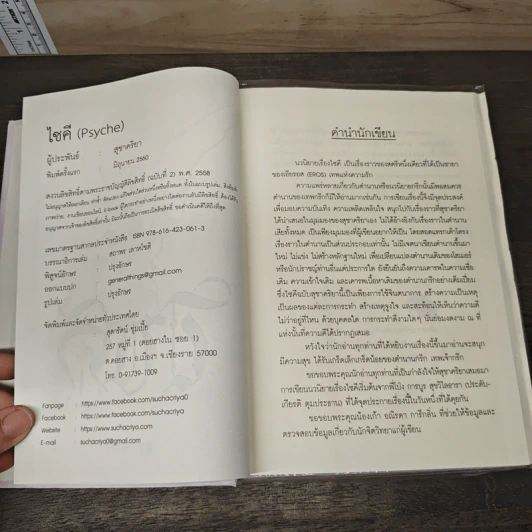 ไซคี (Psyche)
ผู้ประพันธ์ : สุชาคริยา
พิมพ์ครั้งแรก มิถุนายน 2560
สงวนลิขสิทธิ์ตามพระราชบัญญัติลิขสิทธิ์ (ฉบับที่ 2) พ.ศ. 2558
เลขมาตรฐานสากลประจำหนังสือ ISBN 978-616-423-061-3
บรรณาธิการเล่ม : สถาพร เลาหไชติ
พิสูจน์อักษร : ปรุงอักษร
ออกแบบปก : generathings@gmail.com
รูปเล่ม : ปรุงอักษร
จัดพิมพ์และจัดจำหน่ายทั่วประเทศโดย
สุดารัตน์ ชุ่มเปี้ย
257 หมู่ที่ 1 (ดอยฮางใน ซอย 1)
ต.ดอยฮาง อ.เมืองฯ จ.เชียงราย 57000
โทร. 0-91739-1009
Fanpage : https://www.facebook.com/suchacriya
Facebook : https://www.facebook.com/suchacriya0
Website : https://www.suchacriya.com
E-mail : suchacriya0@gmail.com
คำนำนักเขียน
นวนิยายเรื่องไซคี เป็นเรื่องราวของสตรีหนึ่งเดียวที่ได้เป็นชายา
ของเอียรอส (EROS) เทพแห่งความรัก
ความแพร่หลายเกี่ยวกับตำนานหรือนวนิยายกรีกนั้นมีพอสมควร
ตำนานของเทพกรีกก็มีให้อ่านมากเช่นกัน การเขียนเรื่องนี้จึงมีจุดประสงค์
เพื่อมอบความบันเทิง ความเพลิดเพลินใจ สนุกไปกับเรื่องราวที่สุชาคริยา
ได้นำเสนอในมุมมองของสุชาคริยาเอง ไม่ได้อ้างอิงกับเรื่องราวในตำนาน
เสียทั้งหมด เป็นเพียงมุมมองที่ผู้เขียนอยากให้เป็น โดยสอดแทรกเค้าโครง
เรื่องราวในตำนานเป็นส่วนประกอบเท่านั้น ไม่มีเจตนาเขียนตำนานขึ้นมา
ใหม่ ไม่แข่ง ไม่สร้างหลักฐานใหม่ เพื่อเปลี่ยนแปลงตำนานเดิมของโฮเมอร์
หรือนักปราชญ์ท่านอื่นแต่ประการใด ยังยืนยันถึงความเคารพในความเชื่อ
เดิม ความเข้าใจเดิม และเคารพเนื้อหาเดิมของตำนานกรีกอย่างเต็มเปี่ยม
ซึ่งไซคีฉบับสุชาคริยานี้เป็นเพียงการใช้จินตนาการ สร้างความเป็นเหตุ
เป็นผลของแต่ละการกระทำ สร้างเหตุจูงใจ และสะท้อนให้เห็นว่าความดี
ไม่ว่าอยู่ที่ไหน ด้วยบุคคลใด การกระทำดีงามใดๆ นั่นย่อมงดงาม ณ ที่
แห่งนั้นที่ความดีได้ปรากฏเสมอ
หวังใจว่านักอ่านทุกท่านที่ได้หยิบอ่านเรื่องนี้ขึ้นมาอ่านจะสนุก
มีความสุข ได้รับเกร็ดเล็กเกร็ดน้อยของตำนานกรีก เทพเจ้ากรีก
ขอขอบพระคุณนักอ่านทุกท่านที่เป็นกำลังใจให้สุชาคริยาเสมอมา
การเขียนนวนิยายเรื่องไซคีเริ่มต้นจากพี่โป่ง
ที่ได้จุดประกายเรื่องนี้ในวันหนึ่งที่ได้คุยกัน
ขอขอบพระคุณน้องเก้า ที่ช่วยให้ข้อมูลและ
ตรวจสอบข้อมูลเกี่ยวกับนักจิตวิทยาแก่ผู้เขียน